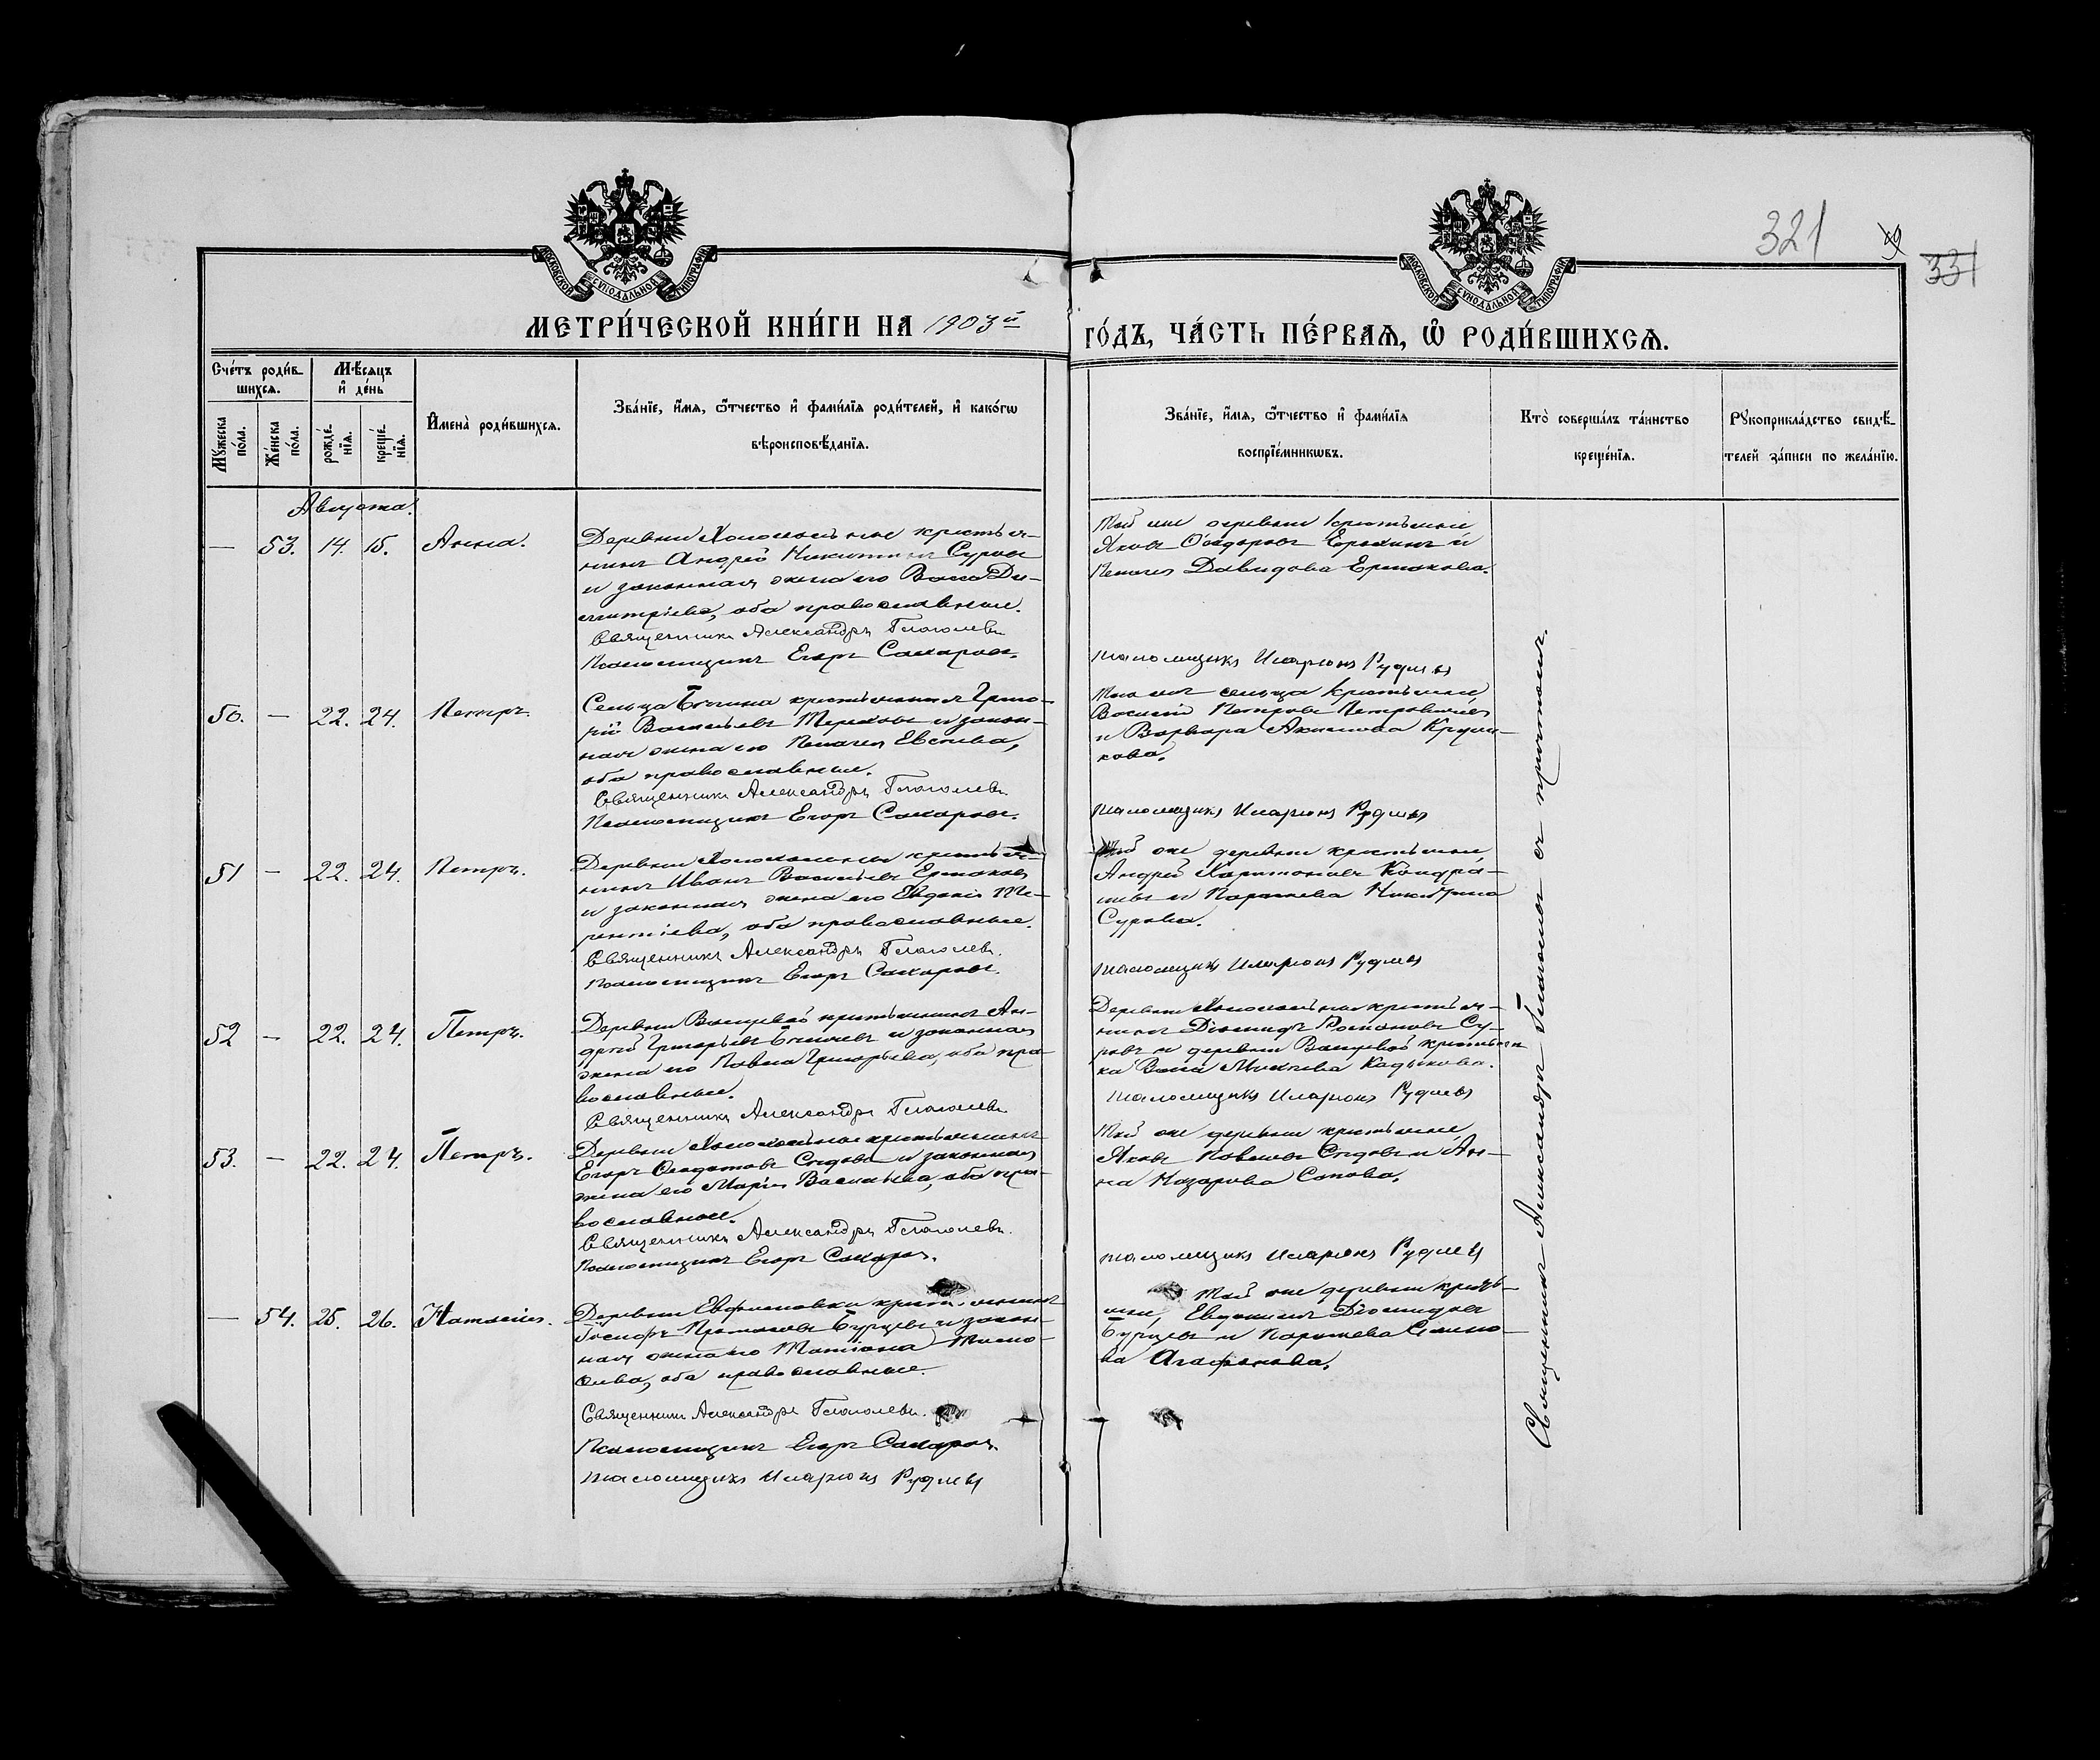 321
49
331
МОСКОВСКОЙ СУНОДАЛЬНОЙ ТИПОГРАФІИ
МОСКОВСКОЙ СУНОДАЛЬНОЙ ТИПОГРАФІИ
МЕТРИ́ЧЕСКОЙ КНИ́ГИ НА 1903й
ГО́ДЪ, ЧА́СТЬ ПЕ́РВАѦ, Ѡ҆ РОДИ́ВШИХСѦ.
Сче́тъ роди́в-
шихсѧ.
Мѣ́сѧцъ
и҆ де́нь
Мꙋ́жеска по́ла.
Же́нска по́ла.
рожде́нїѧ.
креще́нїѧ.
И҆мена̀ роди́вшихсѧ.
Зва́нїе, и҆́мѧ, ѻ҆́тчество и҆ фами́лїѧ роди́телей, и҆ како́гѡ
вѣроисповѣ́данїѧ.
Зва́нїе, и҆́мѧ, ѻ҆́тчество и҆ фами́лїѧ
воспрїе́мникѡвъ.
Кто̀ соверша́лъ та́инство
креще́нїѧ.
Рꙋкоприкла́дство свидѣ́-
телей за́писи по жела́нїю.
Августа.
— 53. 14. 15. Анна.
Деревни крестья-
нинъ Андрей Никитинъ Суровъ
и законная жена его Васса Ди-
митріева, оба православные.
Священникъ Александръ Глаголевъ.
Псаломщикъ Егоръ Сахаровъ.
Той же деревни крестьяне
Яковъ Ѳедоровъ и
Пелагея Давидова Ермакова.
псаломщикъ Иларіонъ Рудневъ
50. — 22. 24. Петръ.
Сельца крестьянинъ Григо-
рій Васильевъ Тереховъ и закон-
ная жена его Пелагея
оба православные.
Священникъ Александръ Глаголевъ.
Псаломщикъ Егоръ Сахаровъ.
Того же сельца крестьяне
Василій Петровъ
и Варвара Акимова
кова.
псаломщикъ Иларіонъ Рудневъ
51 — 22. 24. Петръ.
Деревни крестья-
нинъ Иванъ Васильевъ Ермаковъ
и законная жена его Евдокія Те-
рентіева, оба православные.
Священникъ Александръ Глаголевъ.
Псаломщикъ Егоръ Сахаровъ.
Той же деревни крестьяне
Андрей Харитоновъ Кондра-
шевъ и Параскева Никитина
Сурова.
псаломщикъ Иларіонъ Рудневъ
52 — 22. 24. Петръ.
Деревни крестьянинъ Ан-
дрей Григорьевъ и законная
жена его Павла Григорьева, оба пра-
вославные.
Священникъ Александръ Глаголевъ.
Деревни крестья-
нинъ Діомидъ Романовъ Су-
ровъ и деревни крестьян
ка Васса Кадыкова.
псаломщикъ Иларіонъ Рудневъ
53. — 22. 24. Петръ.
Деревни крестьянинъ
Егоръ Ѳедотовъ Сѣдовъ и законная
жена его Марія Васильева, оба пра-
вославные.
Священникъ Александръ Глаголевъ.
Псаломщикъ Егоръ Сахаровъ.
Той же деревни крестьяне
Яковъ Павловъ Сѣдовъ и Ан-
на Назарова
псаломщикъ Иларіонъ Рудневъ
— 54. 25. 26. Наталия.
Деревни крестьянинъ
Іосифъ Бурцевъ и закон-
ная жена его Татіана Тимо-
ѳеева, оба православные.
Священникъ Александръ Глаголевъ.
Псаломщикъ Егоръ Сахаровъ
псаломщикъ Иларіонъ Рудневъ
Той же деревни кресть-
яне, Евдокимъ Діомидовъ
Бурцевъ и Параскева Симо-
ва Агафонова.
Священникъ Александръ Глаголевъ съ причтомъ.